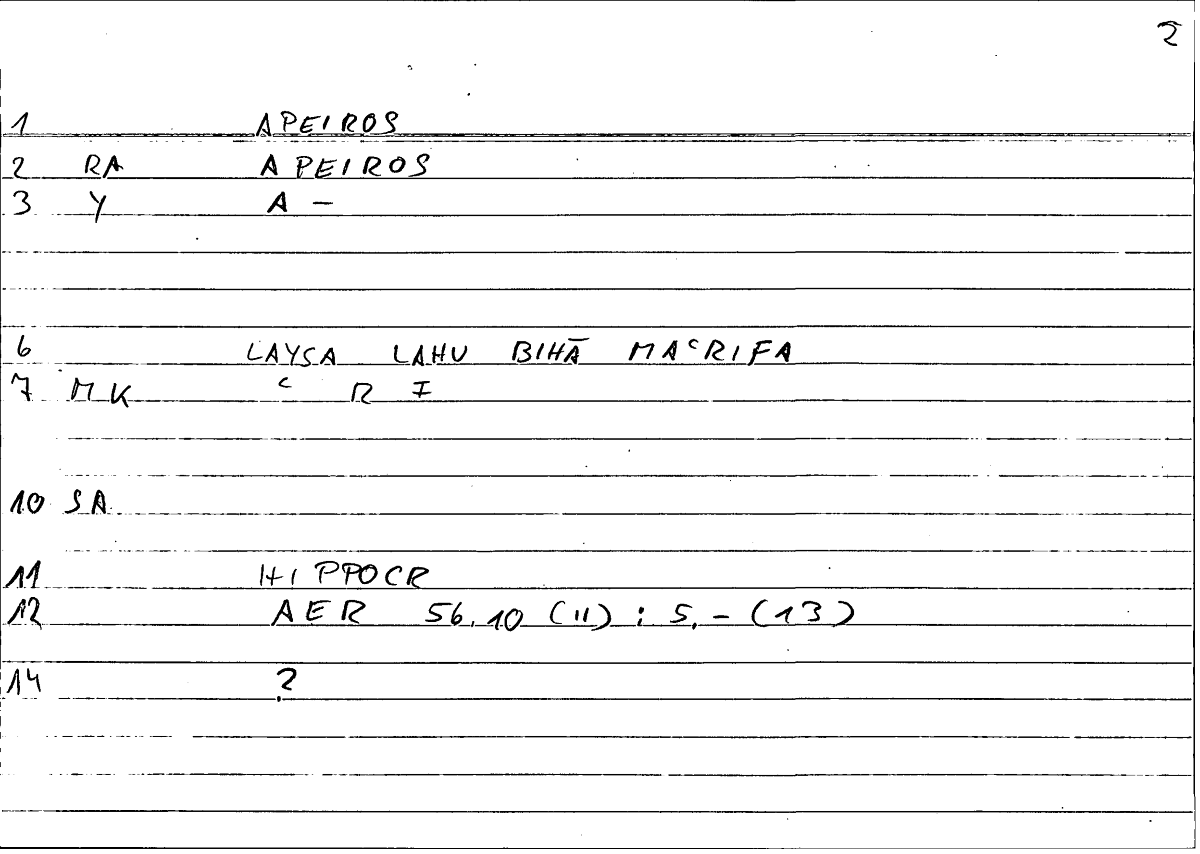 2
1 APEIROS
2 RA APEIROS
3 Y A –
6 LAYSA LAHU BIHĀ MAᶜRIFA
7 MK ᶜ R I
10 SA
11 HIPPOCR
12 AER 56.10 (11) : 5, – (13)
14 ?